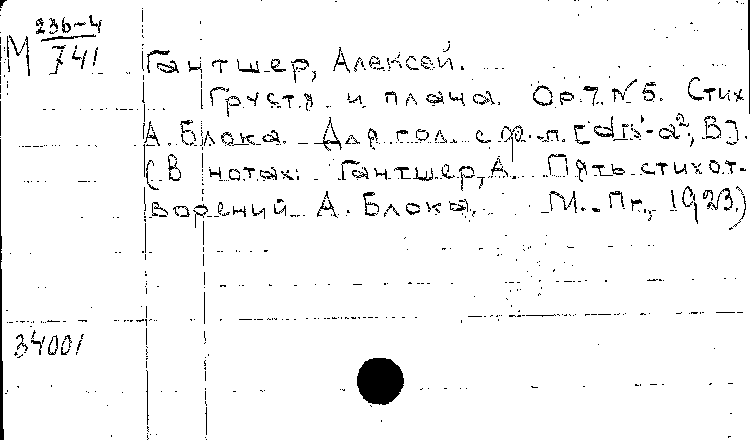 М 236-4
741
Гантшер, Алексей.
Грустя и плача. Ор.7. N 5. Стих
А. Блока. Для гол. с ф.-п. [dis¹-a², В].
(В нотах: Гантшер, А. Пять стихот-
ворений А. Блока. М.-Пг., 1923.)
34001